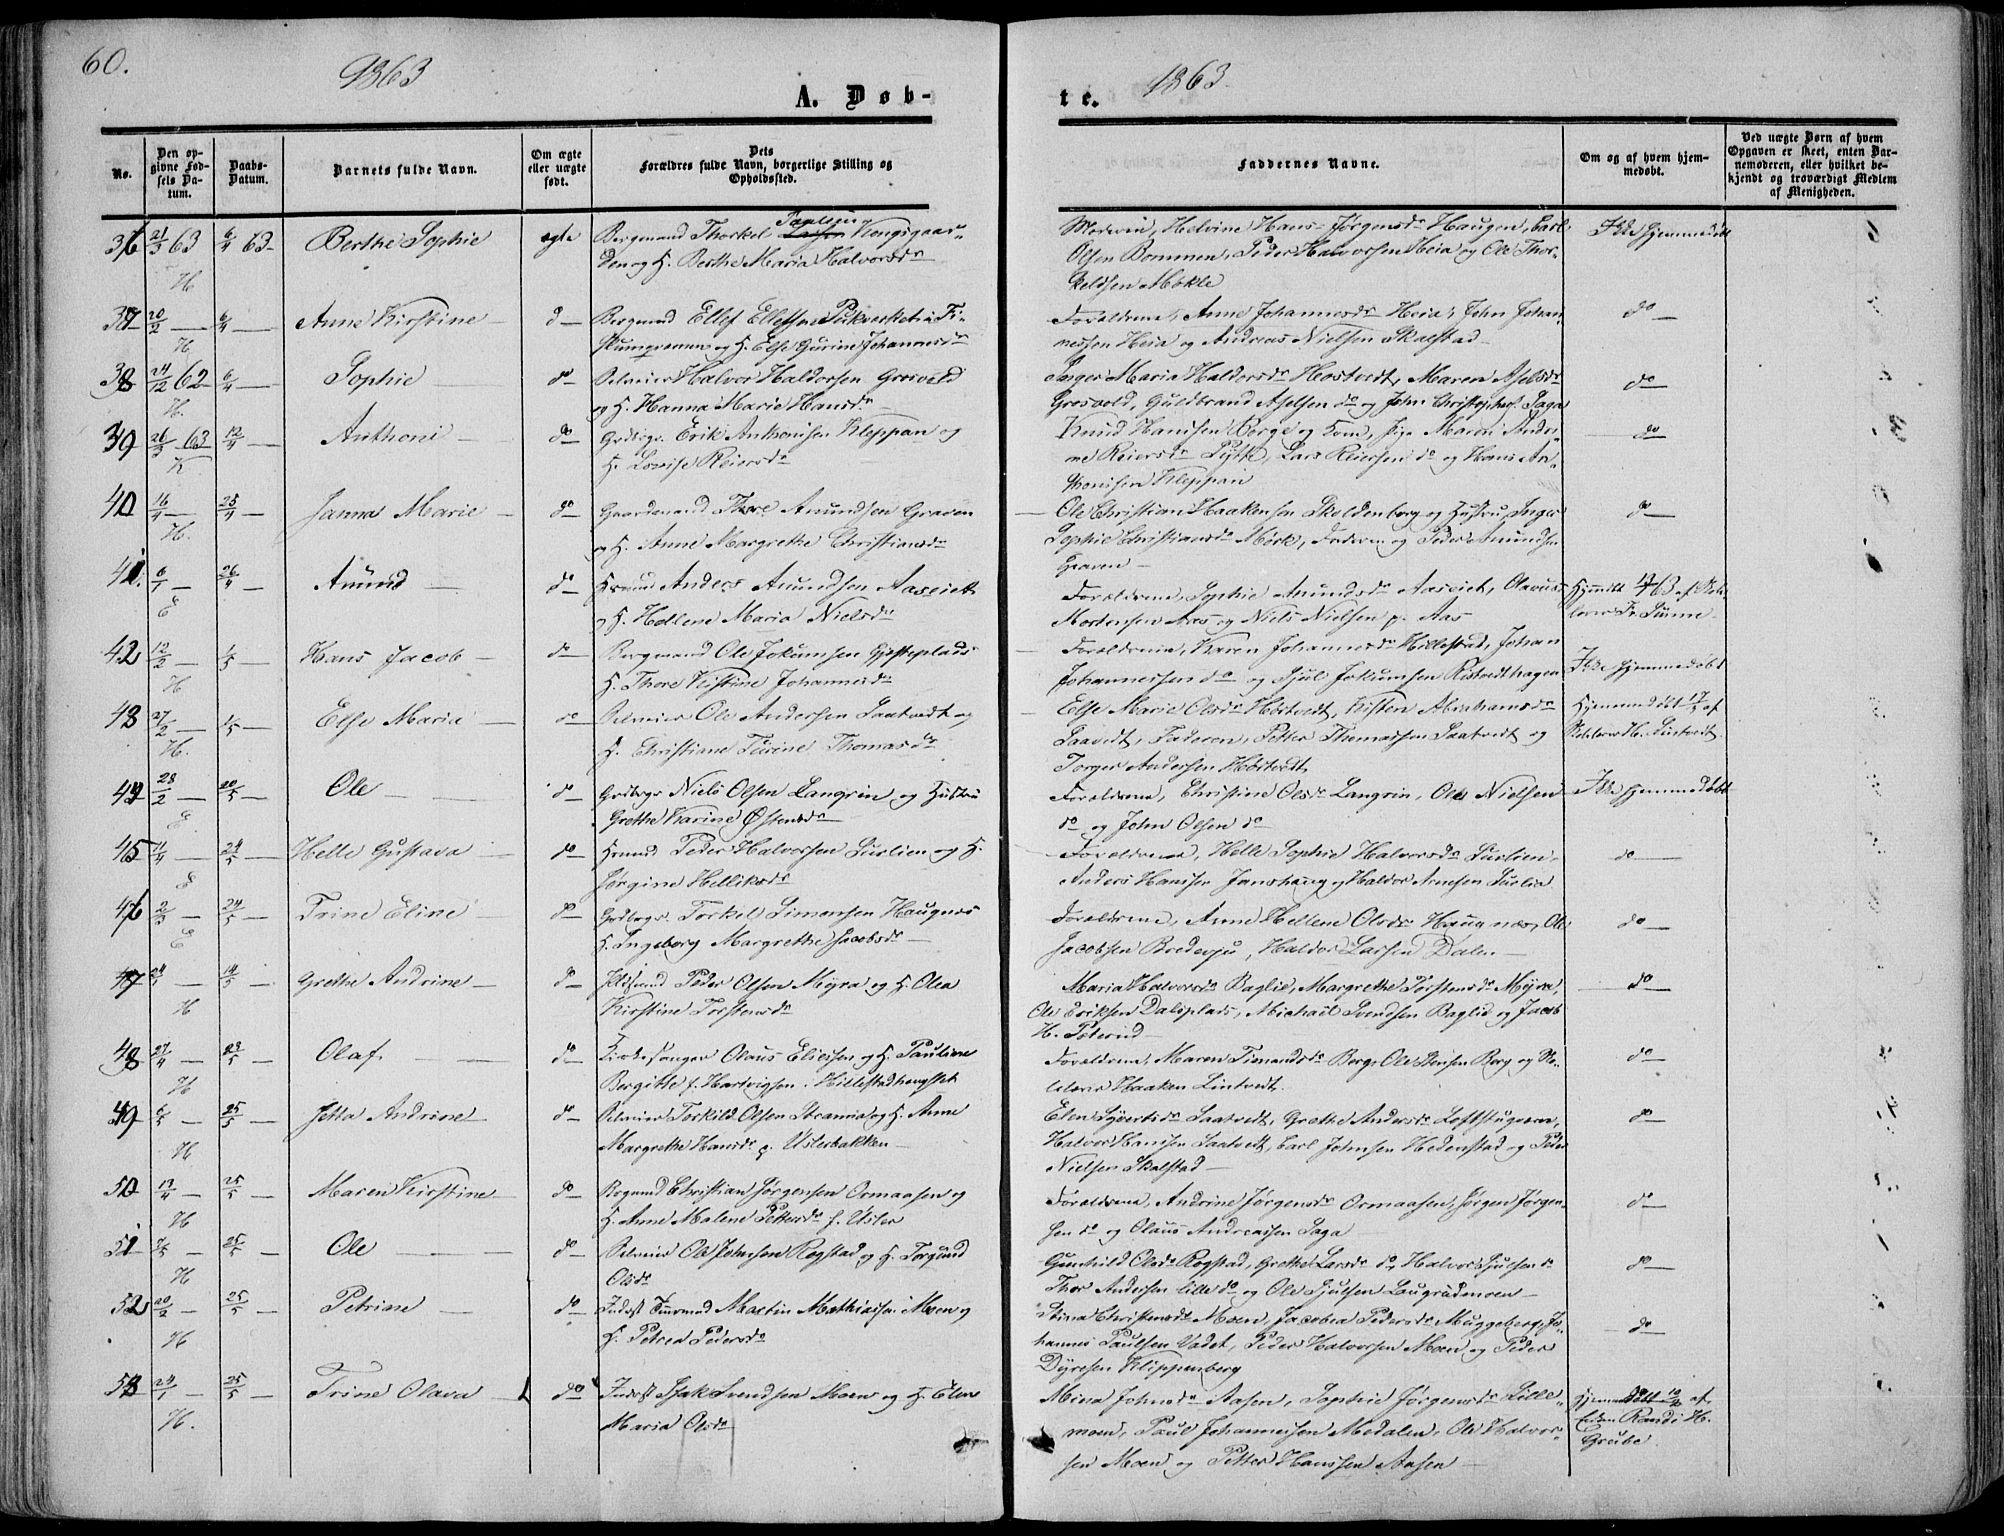 60.
1863
1863.
A. Døb-
te.
No.
Den op-
givne Fød-
sels Da-
tum.
Daabs-
Datum.
Barnets fulde Navn.
Om ægte
eller uægte
født.
Dets
Forældres fulde Navn, borgerlige Stilling og
Opholdssted.
Faddernes Navne.
Om og af hvem hjem-
medøbt.
Ved uægte Børn af hvem
Opgaven er skeet, enten Bar-
nemoderen, eller hvilket be-
kjendt og troværdigt Medlem
af Menigheden.
36 21/3 63 6/4 63 Berthe Sophie ægte Bergmand Thorkel Paulsen Kongsgaar-
den og H. Berthe Maria Halvorsdr
H
Moderen, Helvine Hans Jørgensdr Haugen, Carl
Olsen Bommen, Peder Halvorsen Heia og Ole Thor-
keldsen Møkle
Ikke hjemmedøbt
37 20/2 — 6/4 — Anne Kirstine — d — Bergmd Ellef Ellefsen
og H. Else Gurine Johannesdr
H
Forældrene, Anne Johannesdr Heia, John Johan-
nessen Heia og Andreas Nielsen Skalstad —
do —
38 24/12 62 6/4 — Sophie do Selveier Halvor Haldorsen Grosvold
og H. Hanna Marie Hansdr
H.
Inger Maria Haldorsdr Hostvedt, Maren Axelsdr
Grosvold, Guldbrand Axelsen do og John Christophers. Saga
do
39 26/3 63 12/4 — Anthoni — do Grdbrgr. Erik Anthonisen Kleppan og
H. Lovise Reiersdr
K
Knud Hansen Berge og Kone, Pige Maren Andri-
ne Reiersdr Pytte, Lars Reiersen do og Hans An-
thonisen Kleppan
do
40 16/4 — 25/4 — Hanna Marie — do Gaardmand Thore Amundsen Graven
og H. Anne Margrethe Christiansdr
H.
Ole Christian Haakensen Skoldenborg og Hustru, Inger
Sophie Christiansdr Mørk, Faderen og Peder Amundsen
Graven —
do
41. 6/1 — 26/4 — Amund — do Hmand Anders Amundsen Aaseiet
og H. Hellene Maria Nielsdr
E
Forældrene, Sophie Amundsdr Aaseiet, Olavus
Mortensen Aas og Niels Nielsen p. Aas
63 af Sko-
lelærer Fr. Sinne.
42 12/2 — 1/5 — Hans Jacob — do Bergmand Ole Jokumsen
H. Thore Kirstine Johannesdr
H
Forældrene, Karen Johannesdr Hillestad, Johan
Johannessen do og Sjul Jokumsen Ristvedthagen
Ikke hjemmedøbt
43 27/2 — 1/5 — Else Maria — do Selveier Ole Andersen Saatvedt og
H. Christiane Turine Thomasdr
H.
Else Marie Olsdr Hostvedt, Kirsten Abrahamsdr
Saatvedt, Faderen, Petter Thomassen Saatvedt og
Torger Andersen Hostvedt
Hjemmedøbt af
Skolelærer H. Lintvedt
44 28/2 — 20/5 — Ole — do Grdbrgr Niels Olsen Langrin og Hustru
Grethe Karine Østensdr
E
Forældrene, Christine Olsdr Langrin, Ole Nielsen
do og John Olsen do
Ikke hjemmedøbt
45 11/4 — 24/5 — Helle Gustava do Hmand Peder Halvorsen Surlien og H.
Jørgine Helliksdr
E
Forældrene, Helle Sophie Halvorsdr Surlien,
Anders Hansen Janshaug og Haldor Arnesen Surlia
do
46 2/3 — 24/5 — Trine Eline do Grdbrgr. Torkel Simonsen Haugnæs
H. Ingeborg Margrethe Jacobsdr
E
Forældrene, Anne Hellene Olsdr Haugnæs, Ole
Jacobsen Bredesju, Haldor Larsen Dalen —
do —
47 14/5 — Grethe Andrine — do Peder Olsen Myra og H. Olea
Kirstine Torstensdr
H
Maria Halvorsdr Baglie, Margrethe Torstensdr Myra,
Ole Eriksen Dalsplads, Michael Svendsen Baglid og Jacob
H.
do
48 27/4 — 23/5 — Olaf — do Kirkesanger Olaus Eliesen og H. Pauline
Bergitte f. Hartvigsen
H
Forældrene, Maren Simensdr Berg, Ole Steensen Berg og Sko-
lelærer Haaken Lintvedt.
do
49 6/5 — 25/5 — Jetta Andrine do Selveier Torkild Olsen Stranna og H. Anne
Margrethe Hansdr p. Usterbakken —
H
Elen Syvertsdr Saatvedt, Grethe Andersdr Loftstuguen,
Halvor Hansen Saatvedt, Carl Johnsen Hedenstad og Peder
Nielsen Skalstad —
do
50 13/4 — 25/5 — Maren Kirstine do Brgmnd Christian Jørgensen Ormaasen og
H. Anne Malene Pettersdr f. Uster
H
Forældrene, Andrine Jørgensdr Ormaasen, Jørgen Jørgen-
sen do og Olaus Andreassen Saga
do
51 7/5 — 25/5 — Ole — do Selveier Ole Johnsen Rogstad og H. Torgund
Olsdr
H
Gunhild Olsdr Rogstad, Grethe Larsdr do, Halvor Sjulsen do
Thor Andersen Lille do og Ole Sjulsen Laugrudmoen —
do
52 20/2 — 25/5 — Petrine — do Inderst Martin Mathiasen Moen og
H. Petrea Pedersdr
H
Stina Christensdr Moen, Jacobea Pedersdr Muggeberg, Jo-
hannes Paulsen Vadet, Peder Halvorsen Moen og Peder
Dyresen Klippenberg
do
53 24/1 — 25/5 — Trine Olava do Inderst Isak Svendsen Moen og H. Eline
Maria Olsdr
H.
Mina Johnsdr Aasen, Sophie Jørgensdr Lille-
moen, Paul Johannessen Medalen, Ole Halvor-
sen Moen og Petter Hanssen Aasen —
Hjemmedøbt af
Enken Randi H.
Grube